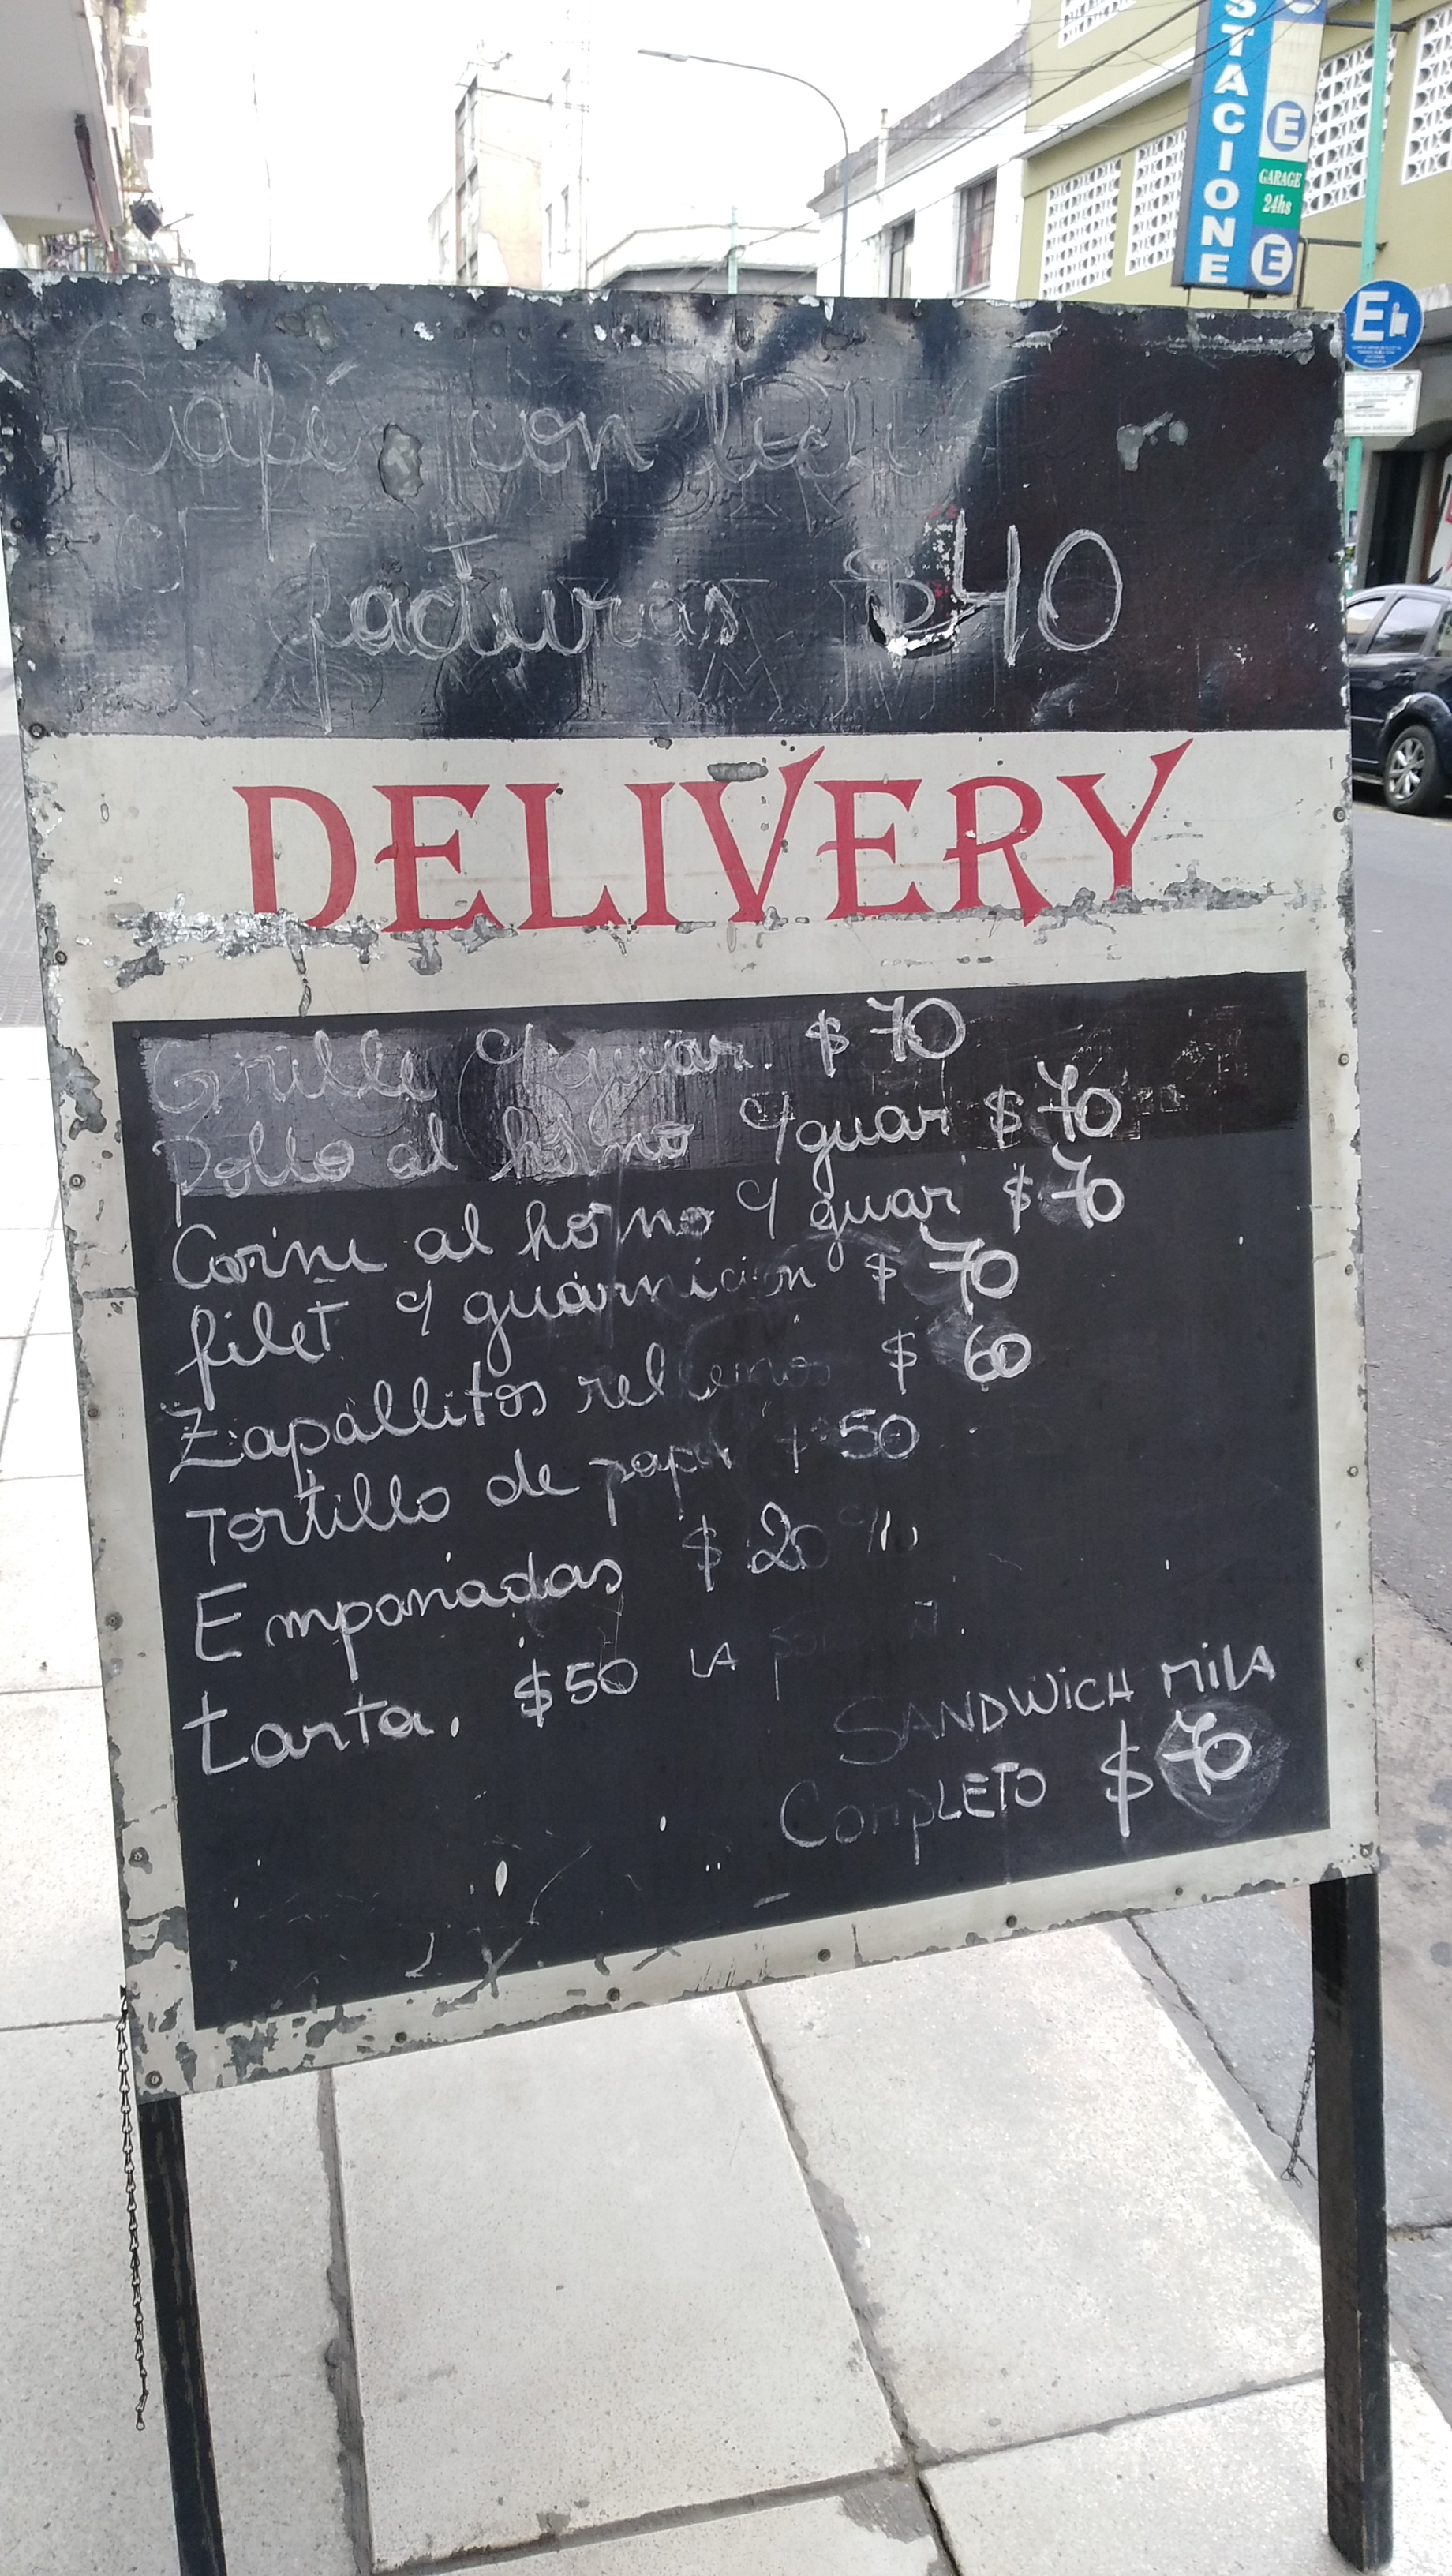 STACIONE
E
GARAGE
24hs
E
E
Café con leche
facturas $40
DELIVERY
Grille c/guar. $70
Pollo al horno c/guar $70
Carne al horno c/guar $70
filet c/guarnicion $70
Zapallitos rellenos $60
Tortilla de papa + 50
Empanadas $20 c/u
tarta. $50 LA
SANDWICH MILA
COMPLETO $70